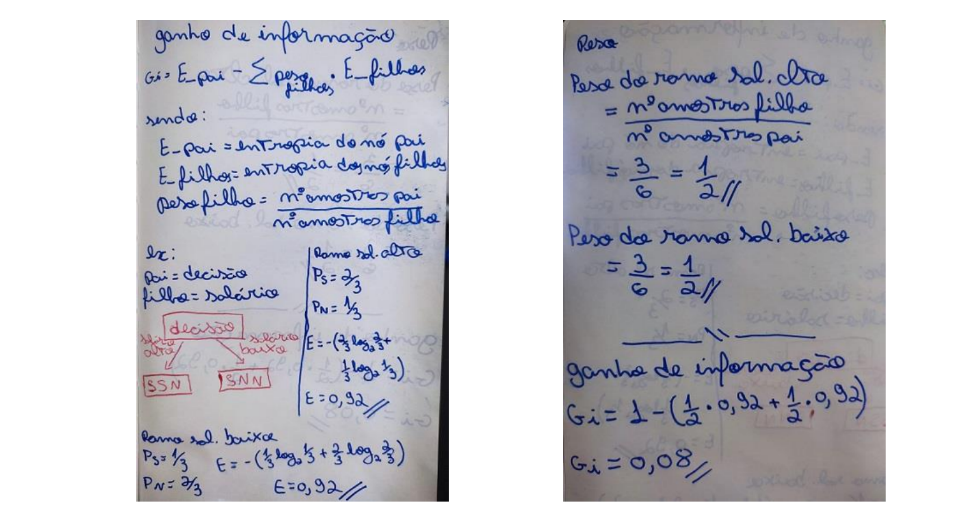 ganho de informação
Gi = E_pai - ∑ peso filhos . E_filhos
sendo:
E_pai = entropia do nó pai
E_filhos = entropia dos nós filhos
peso filho = nº amostras pai / nº amostras filho
ex:
pai = decisão
filho = salário
decisão
salário alto
salário baixo
SSN
SNN
Ramo sal. alto
Ps = 2/3
PN = 1/3
E = -(2/3 log₂ 2/3 +
1/3 log₂ 1/3)
E = 0,92 //
Ramo sal. baixo
Ps = 1/3 E = -(1/3 log₂ 1/3 + 2/3 log₂ 2/3)
PN = 2/3 E = 0,92 //
Peso
Peso do ramo sal. alto
= nº amostras filho / nº amostras pai
= 3/6 = 1/2 //
Peso do ramo sal. baixo
= 3/6 = 1/2 //
ganho de informação
Gi = 1 - (1/2 . 0,92 + 1/2 . 0,92)
Gi = 0,08 //